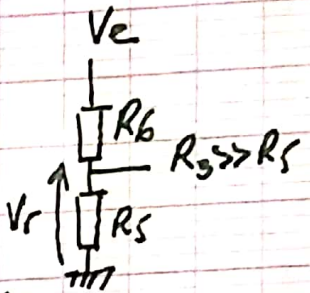 Ve
R6
R3>>R5
Vr
R5